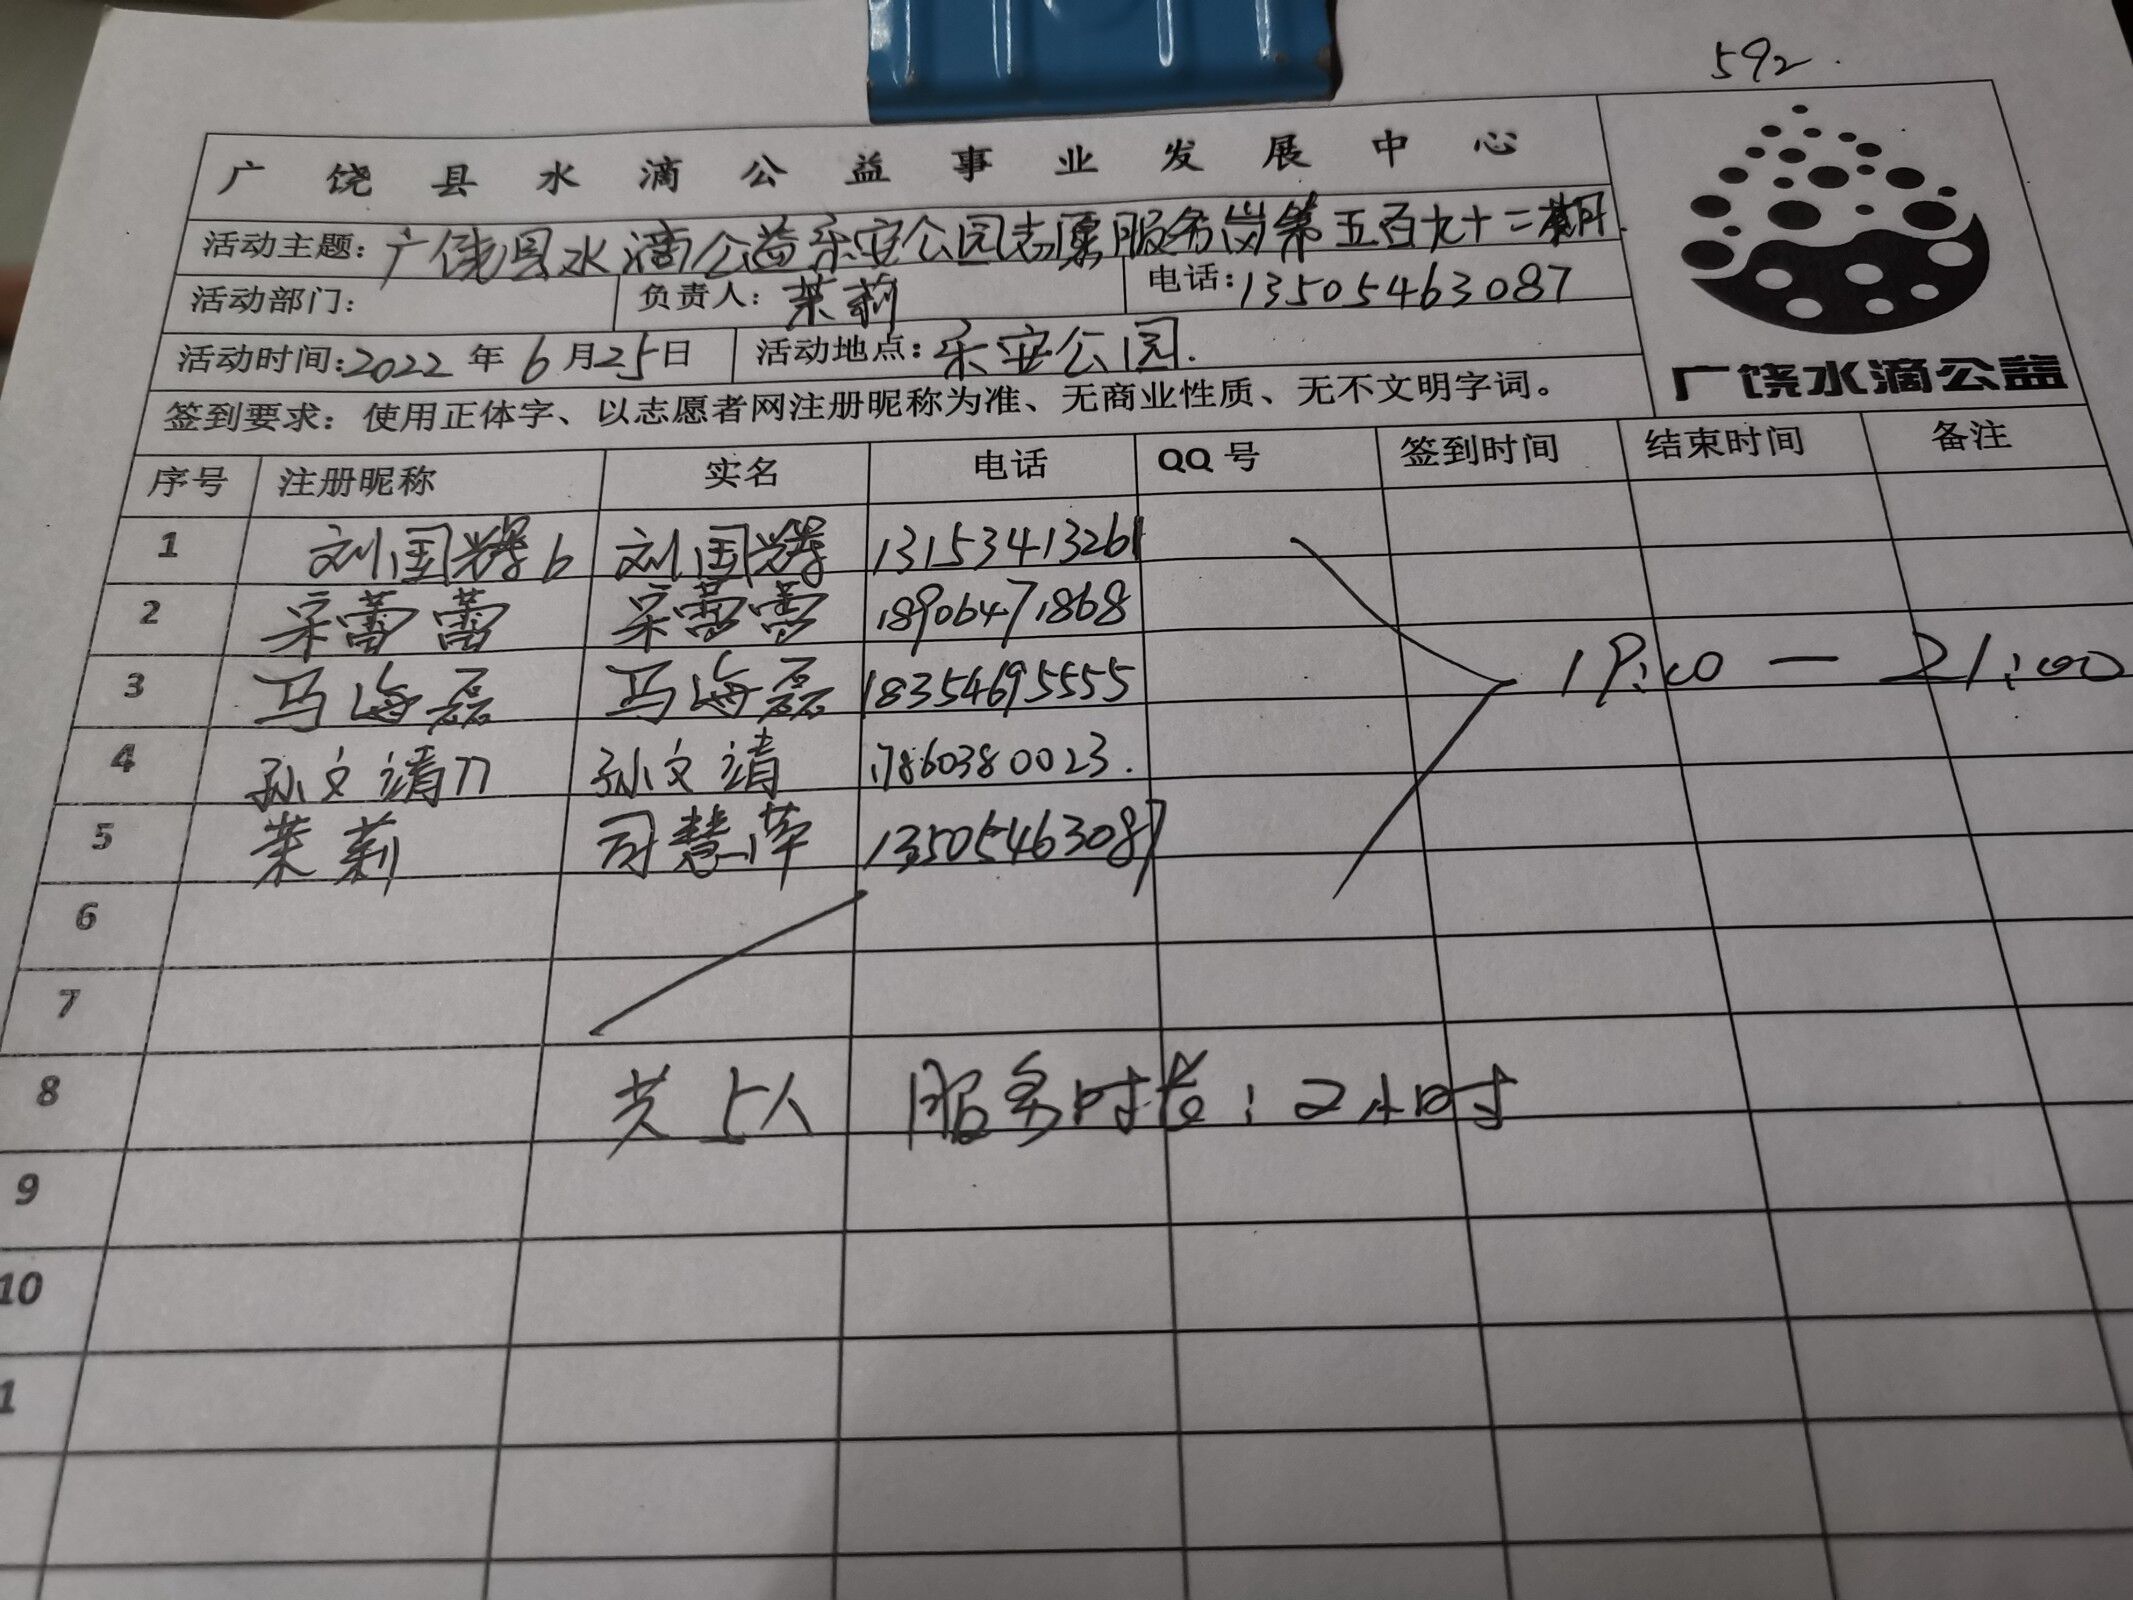 592.
广饶县水滴公益事业发展中心
活动主题：广饶县水滴公益乐安公园志愿服务岗第五百九十二期.
活动部门： 负责人：茉莉 电话：13505463087
活动时间：2022年6月25日 活动地点：乐安公园.
广饶水滴公益
签到要求：使用正体字、以志愿者网注册昵称为准、无商业性质、无不文明字词。
序号 注册昵称 实名 电话 QQ号 签到时间 结束时间 备注
1 刘国辉6 刘国辉 13153413261
2 宋蕾蕾 宋蕾蕾 18906471868
3 马海磊 马海磊 18354695555
19:00 — 21:00
4 孙文靖77 孙文靖 17860380023.
5 茉莉 司慧萍 13505463087
6
7
8 共5人 服务时长：2小时
9
10
1